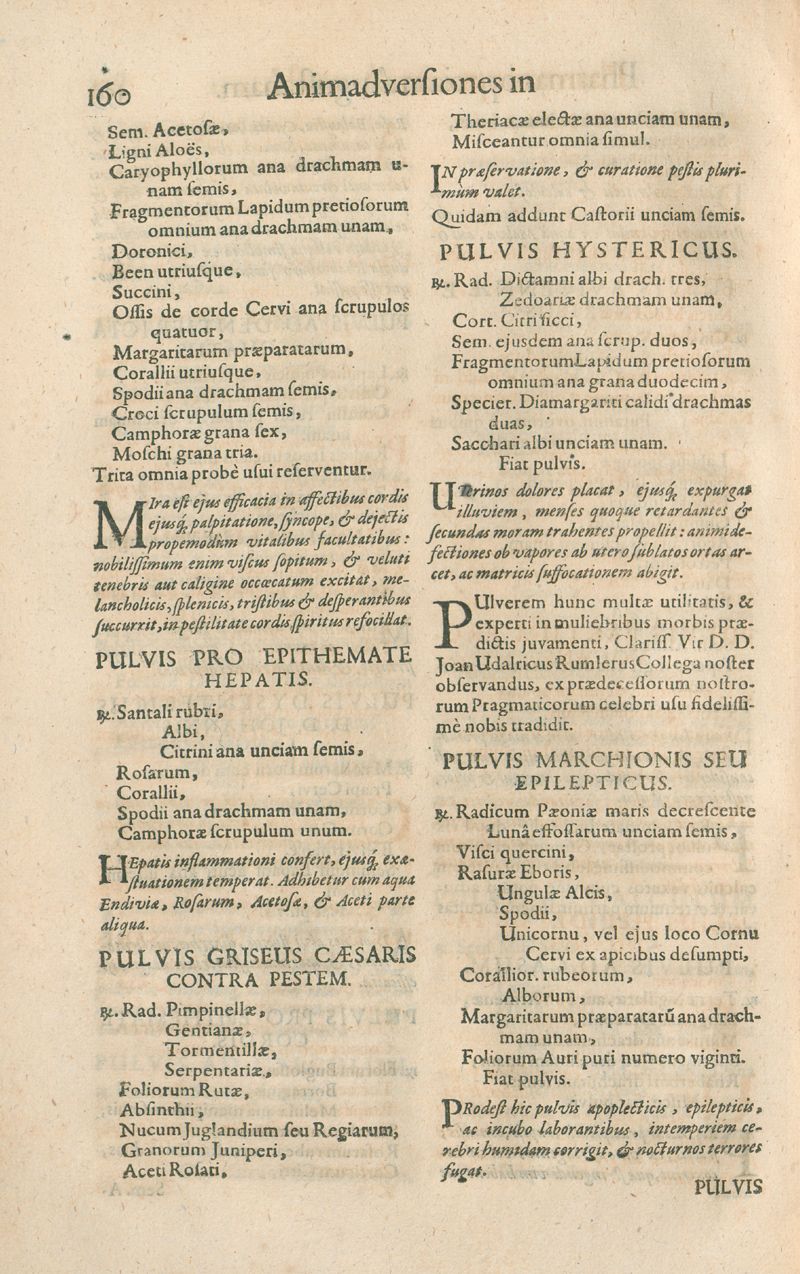 160
Animadverſiones in
Sem. Acetoſæ,
Ligni Aloës,
Caryophyllorum ana drachmam u-
nam ſemis,
Fragmentorum Lapidum pretioſorum
omnium ana drachmam unam,
Doronici,
Been utriuſque,
Succini,
Oſſis de corde Cervi ana ſcrupulos
quatuor,
Margaritarum præparatarum,
Corallii utriuſque,
Spodii ana drachmam ſemis,
Croci ſcrupulum ſemis,
Camphoræ grana ſex,
Moſchi grana tria.
Trita omnia probè uſui reſerventur.
MIra eſt ejus efficacia in affectibus cordis
ejusq́; palpitatione, ſyncope, & dejectis
propemodùm vitalibus facultatibus:
nobiliſſimum enim viſcus ſopitum, & veluti
tenebris aut caligine occœcatum excitat, me-
lancholicis, ſplenicis, triſtibus & deſperantibus
ſuccurrit, in peſtilitate cordis ſpiritus refocillat.
PULVIS PRO EPITHEMATE
HEPATIS.
℞. Santali rubri,
Albi,
Citrini ana unciam ſemis,
Roſarum,
Corallii,
Spodii ana drachmam unam,
Camphoræ ſcrupulum unum.
HEpatis inflammationi confert, ejusq́; exæ-
ſtuationem temperat. Adhibetur cum aqua
Endiviæ, Roſarum, Acetoſæ, & Aceti parte
aliqua.
PULVIS GRISEUS CÆSARIS
CONTRA PESTEM.
℞. Rad. Pimpinellæ,
Gentianæ,
Tormentillæ,
Serpentariæ,
Foliorum Rutæ,
Abſinthii,
Nucum Juglandium ſeu Regiarum,
Granorum Juniperi,
Aceti Roſati,
Theriacæ electæ ana unciam unam,
Miſceantur omnia ſimul.
IN præſervatione, & curatione peſtis pluri-
mum valet.
Quidam addunt Caſtorii unciam ſemis.
PULVIS HYSTERICUS.
℞. Rad. Dictamni albi drach. tres,
Zedoariæ drachmam unam,
Cort. Citri ſicci,
Sem. ejusdem ana ſcrup. duos,
Fragmentorum Lapidum pretioſorum
omnium ana grana duodecim,
Specier. Diamargariti calidi drachmas
duas,
Sacchari albi unciam unam.
Fiat pulvis.
UTerinos dolores placat, ejusq́; expurgat
illuviem, menſes quoque retardantes &
ſecundas moram trahentes propellit: animi de-
fectiones ob vapores ab utero ſublatos ortas ar-
cet, ac matricis ſuffocationem abigit.
PUlverem hunc multæ utilitatis, &
experti in muliebribus morbis præ-
dictis juvamenti, Clariſſ. Vir D. D.
Joan Udalricus Rumlerus Collega noſter
obſervandus, ex prædeceſſorum noſtro-
rum Pragmaticorum celebri uſu fideliſſi-
mè nobis tradidit.
PULVIS MARCHIONIS SEU
EPILEPTICUS.
℞. Radicum Pæoniæ maris decreſcente
Lunâ effoſſarum unciam ſemis,
Viſci quercini,
Raſuræ Eboris,
Ungulæ Alcis,
Spodii,
Unicornu, vel ejus loco Cornu
Cervi ex apicibus deſumpti,
Corallior. rubeorum,
Alborum,
Margaritarum præparatarũ ana drach-
mam unam,
Foliorum Auri puri numero viginti.
Fiat pulvis.
PRodeſt hic pulvis apoplecticis, epilepticis,
ac incubo laborantibus, intemperiem ce-
rebri humidam corrigit, & nocturnos terrores
fugat.
PULVIS